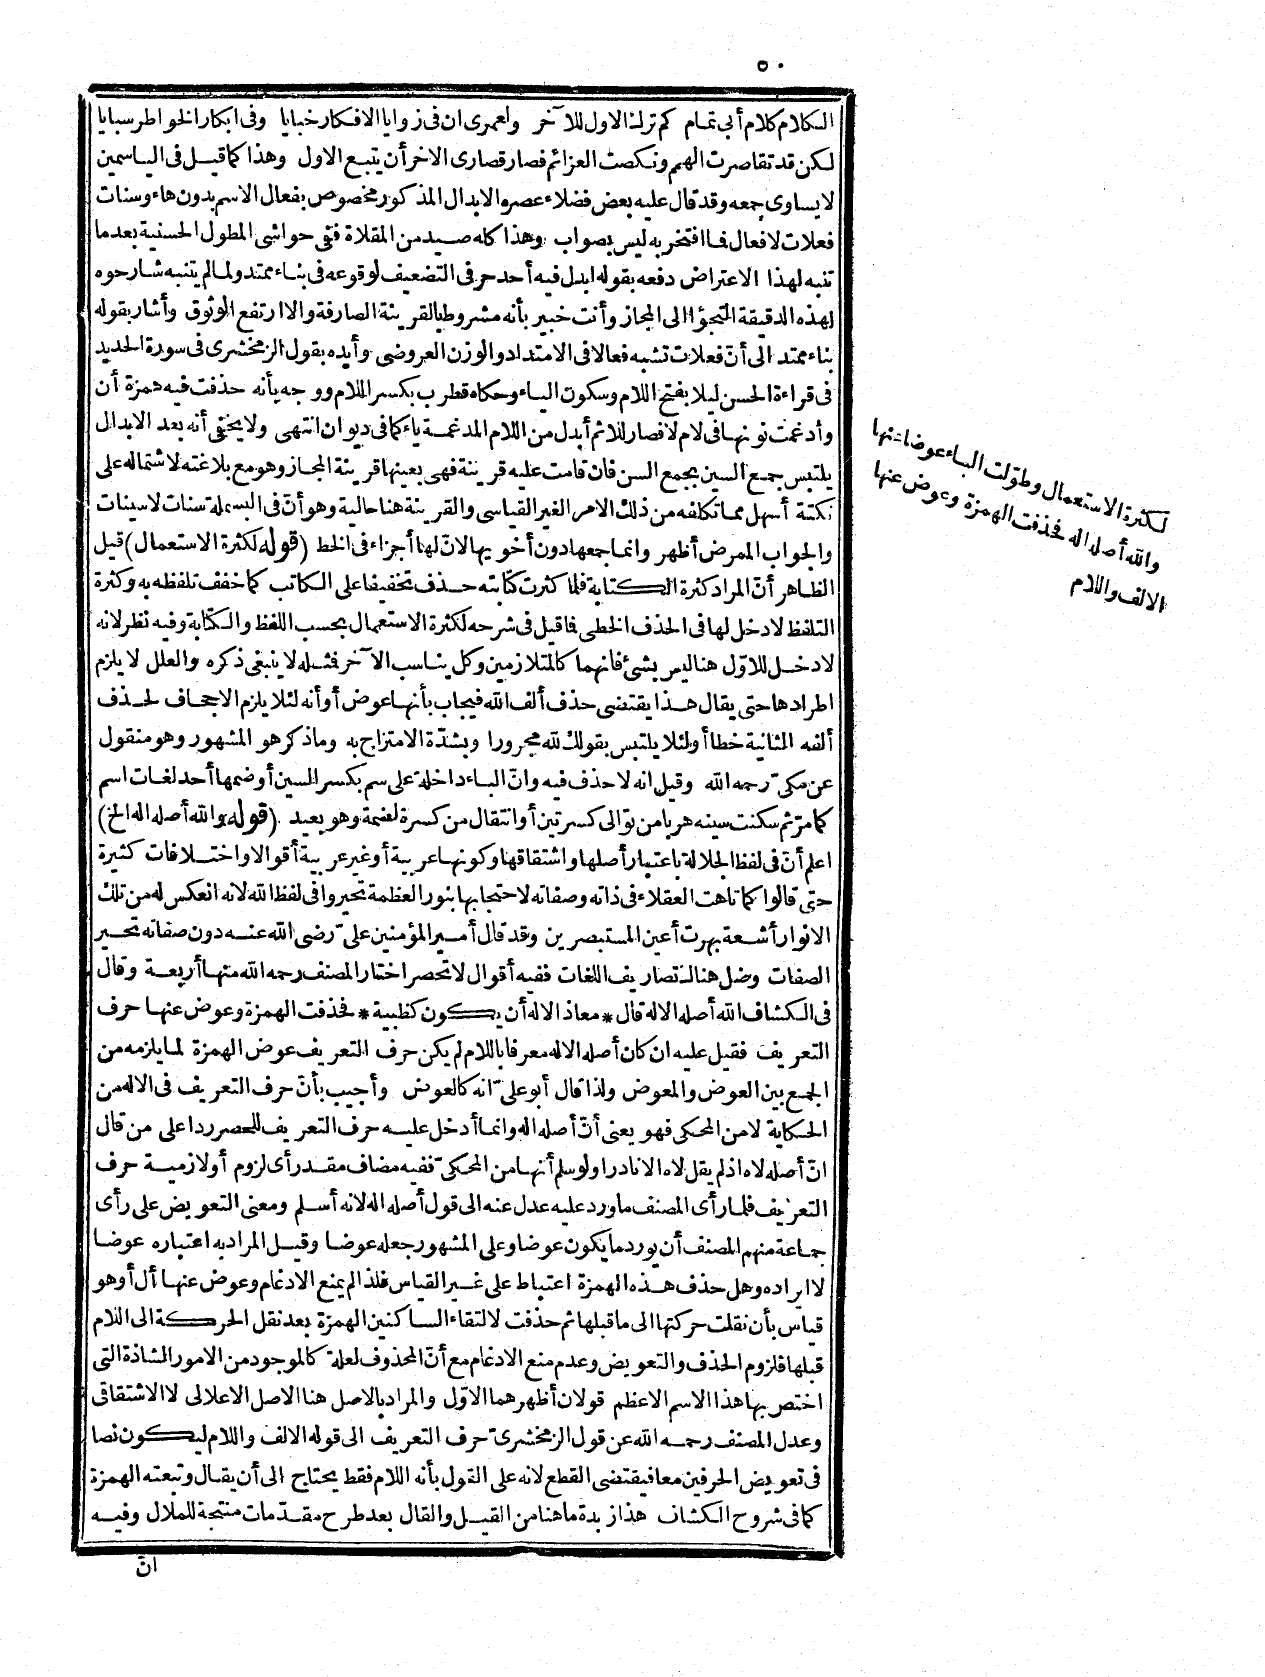 ٥٠
الكلام كلام أبي تمام كم ترك الاول للآخر ولعمرى ان فى زوايا الافكار خبايا وفى ابكار الخواطر سبايا
لكن قد تقاصرت الهمم ونكصت العزائم فصار قصارى الاخر أن يتبع الاول وهذا كما قيل فى الياسمين
لا يساوى جمعه وقد قال عليه بعض فضلاء عصره الابدال المذكور مخصوص بفعال الاسم بدون هاء وسنات
فعلات لا فعال فما افتخر به ليس بصواب وهذا كله صيد من المقلاة ففى حواشى المطول الحسنية بعدما
تنبه لهذا الاعتراض دفعه بقوله ابدل فيه أحد حرفى التضعيف لوقوعه فى بناء ممتد ولما لم يتنبه شارحوه
لهذه الدقيقة التجؤا الى المجاز وأنت خبير بأنه مشروط بالقرينة الصارفة والا ارتفع الوثوق وأشار بقوله
بناء ممتد الى أنّ فعلات تشبه فعالا فى الامتداد والوزن العروضى وأيده بقول الزمخشرى فى سورة الحديد
فى قراءة الحسن ليلا بفتح اللام وسكون الياء وحكاه قطرب بكسر اللام ووجه بأنه حذفت فيه همزة أن
وأدغمت نونها فى لام لا فصار للا ثم أبدل من اللام المدغمة ياء كما فى ديوان انتهى ولا يخفى أنه بعد الابدال
يلتبس جمع السين بجمع السن فان قامت عليه قرينة فهى بعينها قرينة المجاز وهو مع بلاغته لاشتماله على
نكتة أسهل مما تكلفه من ذلك الامر الغير القياسى والقرينة هنا حالية وهو أنّ فى البسملة سنات لا سينات
والجواب الممرض أظهر وانما جمعها دون أخويها لانّ لها أجزاء فى الخط (قوله لكثرة الاستعمال) قيل
الظاهر أنّ المراد كثرة الكتابة فلما كثرت كتابته حذف تخفيفا على الكاتب كما خفف تلفظه به وكثرة
التلفظ لا دخل لها فى الحذف الخطى فما قيل فى شرحه لكثرة الاستعمال بحسب اللفظ والكتابة وفيه نظر لانه
لا دخل للاوّل هنا ليس بشئ فانهما كالمتلازمين وكل يناسب الآخر فمثله لا ينبغى ذكره والعلل لا يلزم
اطرادها حتى يقال هذا يقتضى حذف ألف الله فيجاب بأنها عوض أو أنه لئلا يلزم الاجحاف لحذف
ألفه الثانية خطا أو لئلا يلتبس بقولك لله مجرورا وبشدّة الامتزاج به وما ذكر هو المشهور وهو منقول
عن مكىّ رحمه الله وقيل انه لا حذف فيه وانّ الباء داخلة على سم بكسر السين أو ضمها أحد لغات اسم
كما مرّ ثم سكنت سينه هربا من توالى كسرتين أو انتقال من كسرة لضمة وهو بعيد (قوله والله أصله اله الخ)
اعلم أنّ فى لفظ الجلالة باعتبار أصلها واشتقاقها وكونها عربية أو غير عربية أقوالا واختلافات كثيرة
حتى قالوا كما تاهت العقلاء فى ذاته وصفاته لاحتجابها بنور العظمة تحيروا فى لفظ الله لانه انعكس له من تلك
الانوار أشعة بهرت أعين المستبصرين وقد قال أمير المؤمنين علىّ رضى الله عنه دون صفاته تحير
الصفات وضل هناك تصاريف اللغات ففيه أقوال لا تحصر اختار المصنف رحمه الله منها أربعة وقال
فى الكشاف الله أصله الاله قال * معاذ الاله أن يكون كظبية * فحذفت الهمزة وعوض عنها حرف
التعريف فقيل عليه ان كان أصله الاله معرفا باللام لم يكن حرف التعريف عوض الهمزة لما يلزمه من
الجمع بين العوض والمعوض ولذا قال أبو علىّ انه كالعوض وأجيب بأنّ حرف التعريف فى الاله من
الحكاية لا من المحكى فهو يعنى أنّ أصله اله وانما أدخل عليه حرف التعريف للحصر ردا على من قال
انّ أصله لاه اذ لم يقل لاه الا نادرا ولو سلم أنها من المحكىّ ففيه مضاف مقدر أى لزوم أو لازمية حرف
التعريف فلما رأى المصنف ما ورد عليه عدل عنه الى قول أصله اله لانه أسلم ومعنى التعويض على رأى
جماعة منهم المصنف أن يورد ما يكون عوضا وعلى المشهور جعله عوضا وقيل المراد به اعتباره عوضا
لا ايراده وهل حذف هذه الهمزة اعتباط على غير القياس فلذا لم يمنع الادغام وعوض عنها أل أو هو
قياس بأن نقلت حركتها الى ما قبلها ثم حذفت لالتقاء الساكنين الهمزة بعد نقل الحركة الى اللام
قبلها فلزوم الحذف والتعويض وعدم منع الادغام مع أنّ المحذوف لعلة كالموجود من الامور الشاذة التى
اختص بها هذا الاسم الاعظم قولان أظهرهما الاوّل والمراد بالاصل هنا الاصل الاعلالى لا الاشتقاقى
وعدل المصنف رحمه الله عن قول الزمخشرىّ حرف التعريف الى قوله الالف واللام ليكون نصا
فى تعويض الحرفين معا فيقتضى القطع لانه على القول بأنه اللام فقط يحتاج الى أن يقال وتبعته الهمزة
كما فى شروح الكشاف هذا زبدة ما هنا من القيل والقال بعد طرح مقدّمات منتجة للملال وفيه
انّ
لكثرة الاستعمال وطوّلت الباء عوضا عنها
والله أصله اله فحذفت الهمزة وعوض عنها
الالف واللام